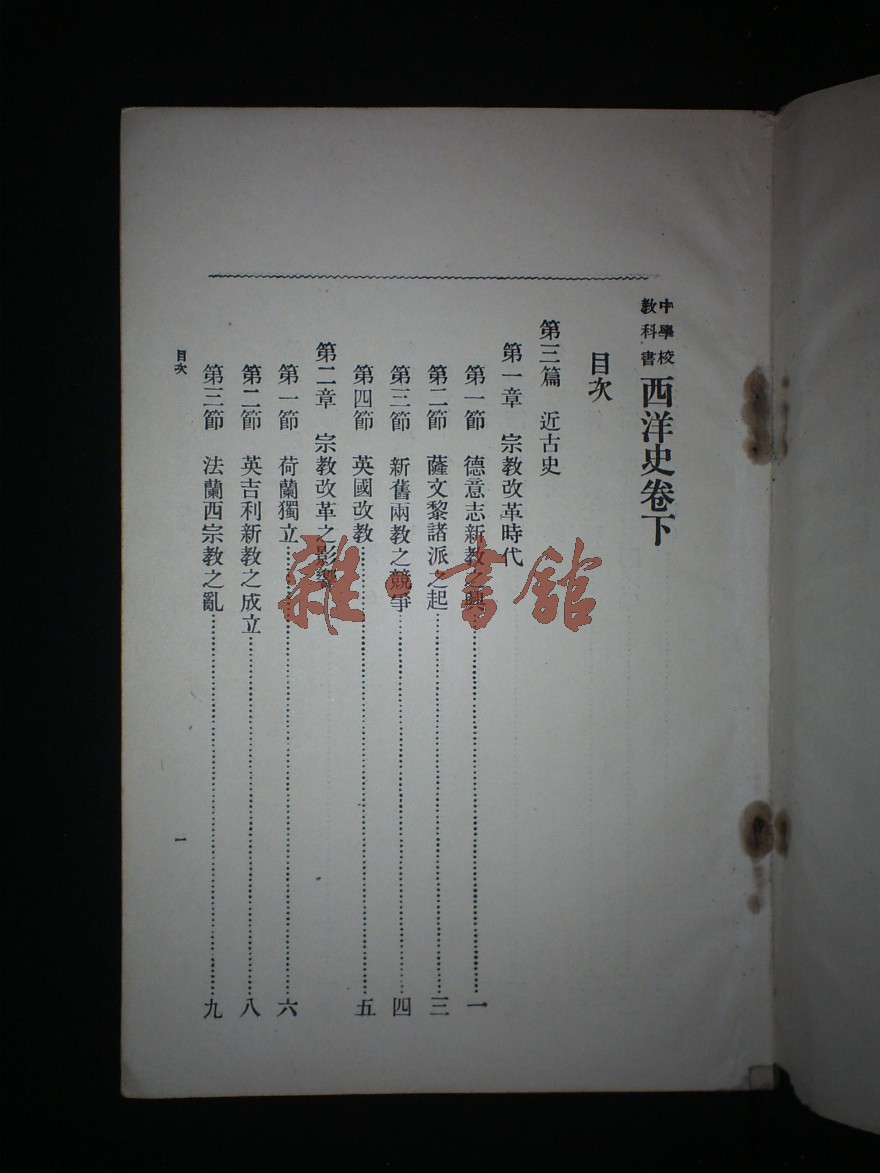 中學校教科書 西洋史卷下
目次
第三篇 近古史
第一章 宗教改革時代
第一節 德意志新教之興……一
第二節 薩文黎諸派之起……三
第三節 新舊兩教之競爭……四
第四節 英國改教……五
第二章 宗教改革之影響
第一節 荷蘭獨立……六
第二節 英吉利新教之成立……八
第三節 法蘭西宗教之亂……九
目次
一
雜·書館